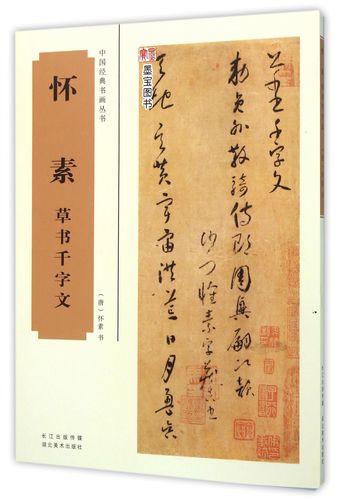 中国经典书画丛书
怀素
草书千字文
（唐）怀素 书
长江出版传媒
湖北美术出版社
墨宝图书
千字文
敕員外散騎侍郎周興嗣次韻
沙门懷素字藏真書
天地玄黃宇宙洪荒日月盈昃